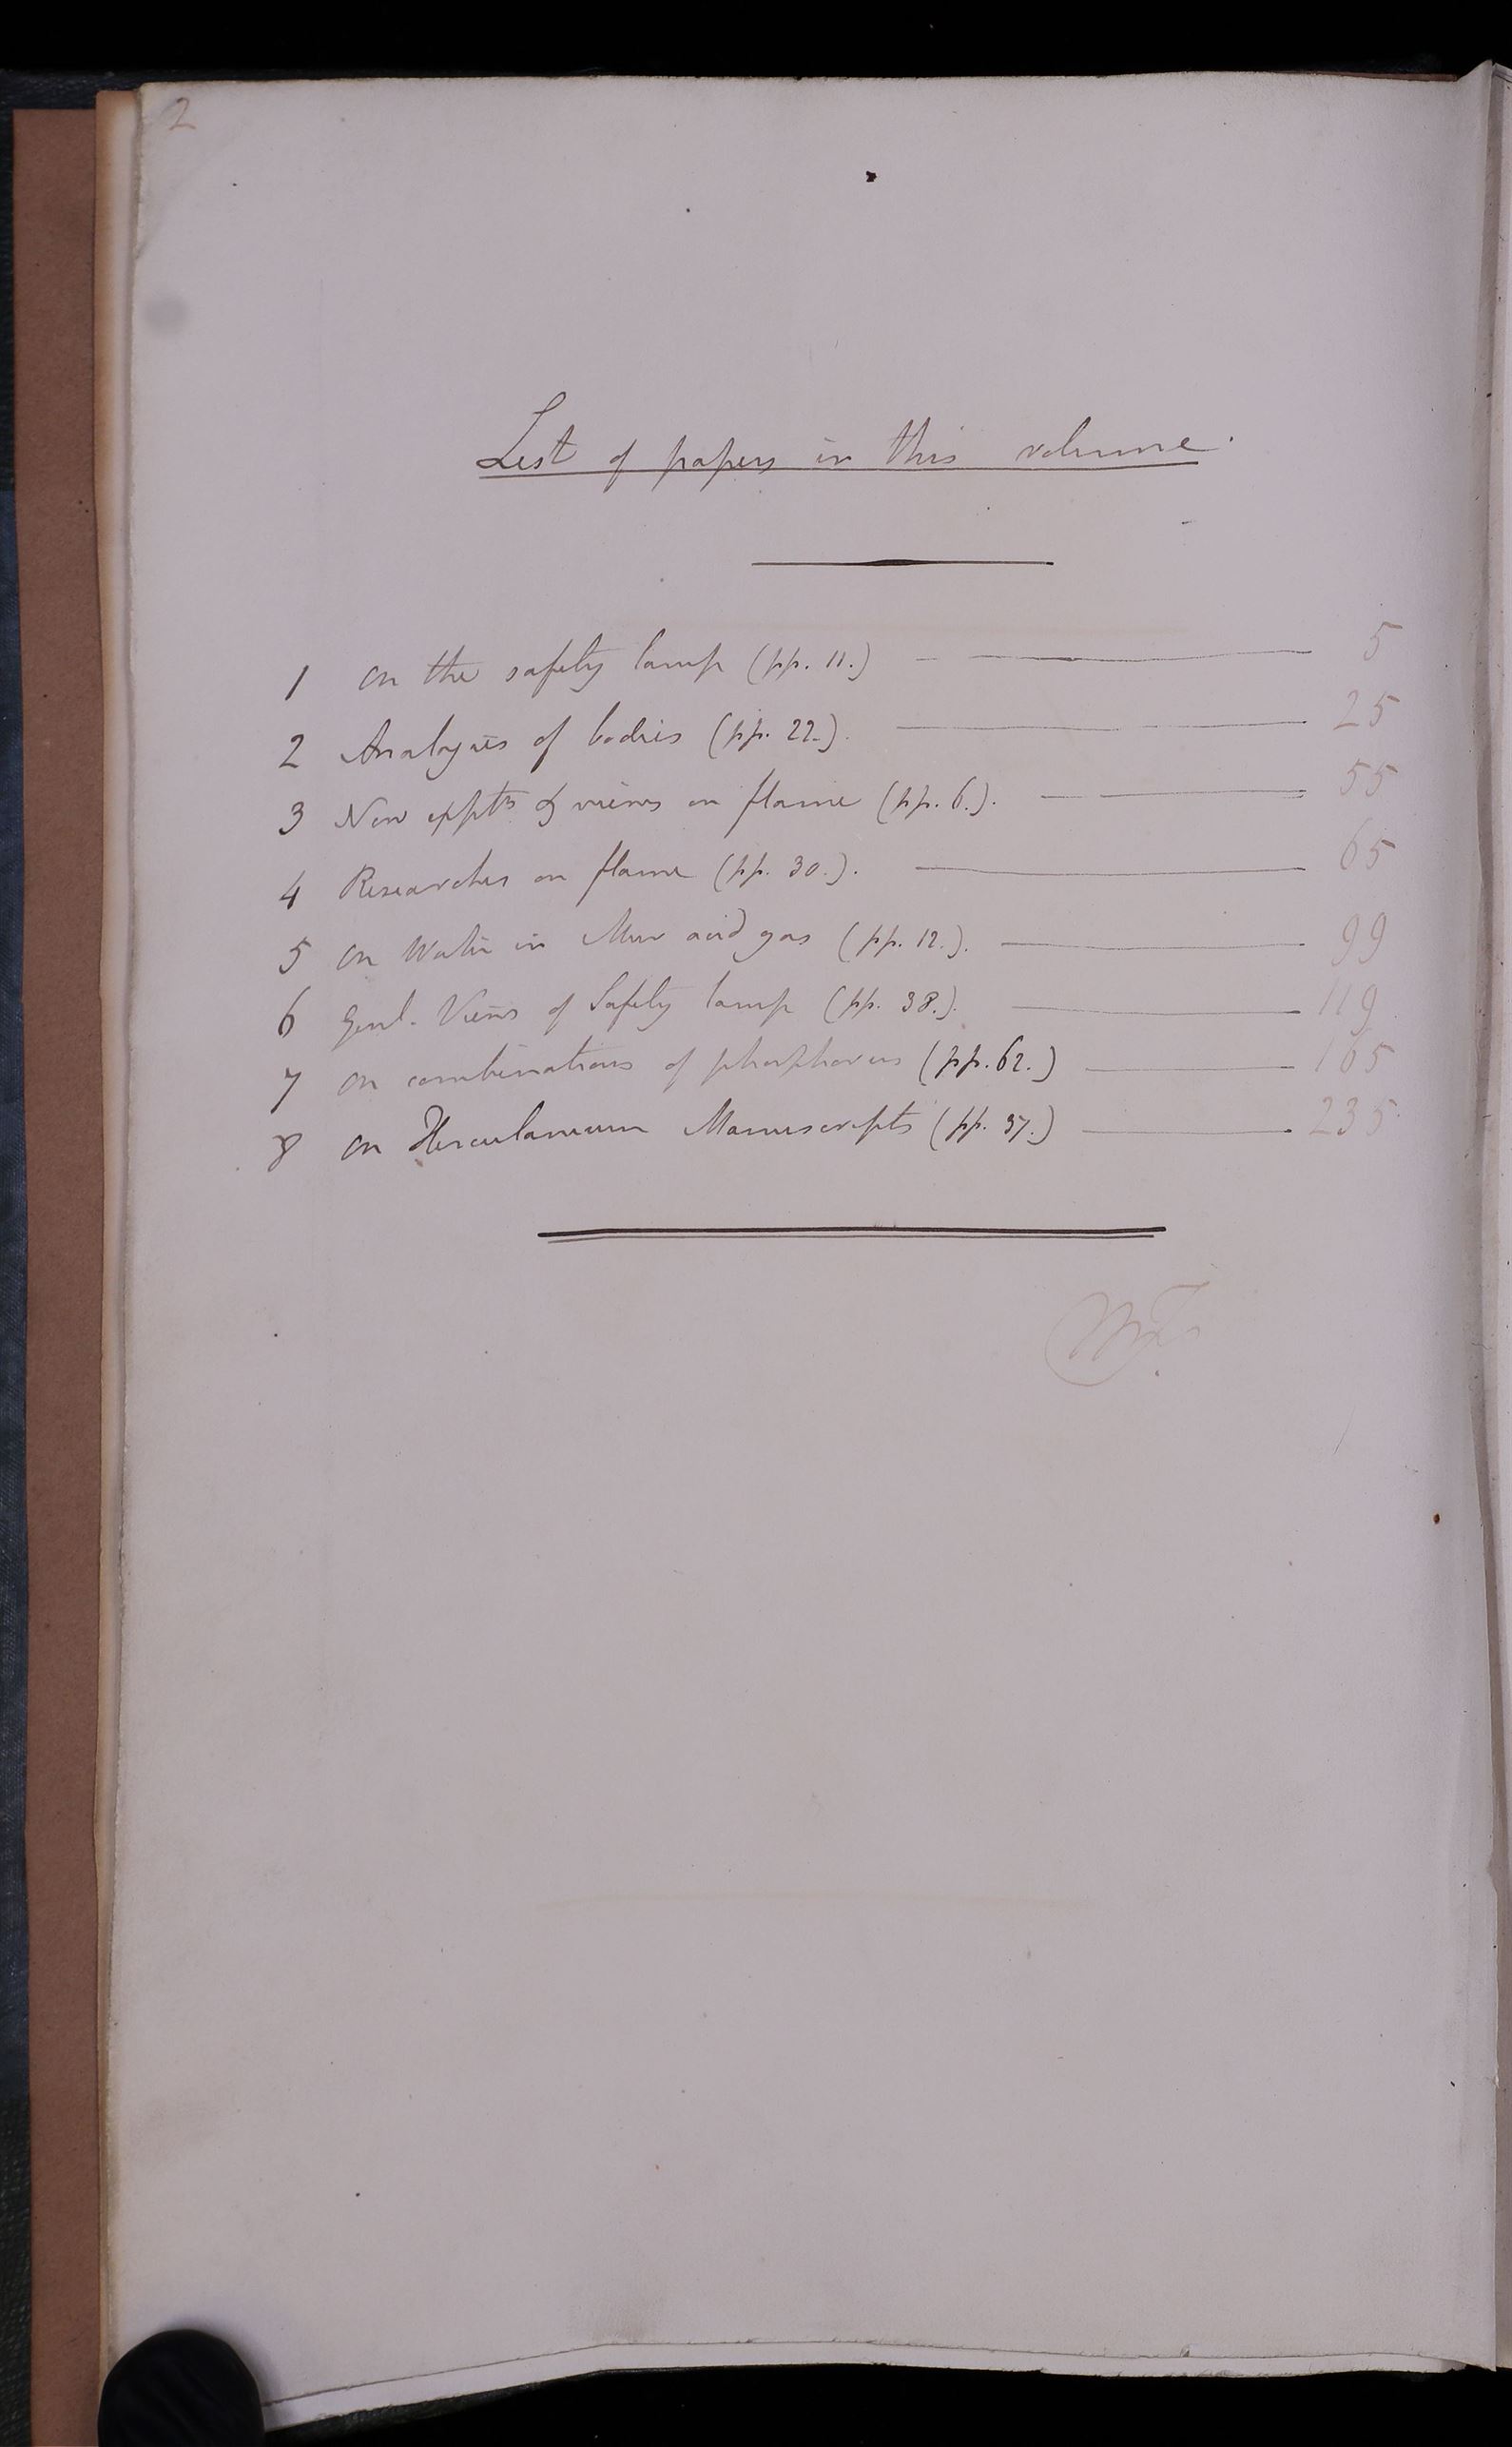 2
List of papers in this volume.
1 On the safety lamp (pp. 11.) 5
2 Analogies of bodies (pp. 22.). 25
3 New exptˢ & views on flame (pp. 6.). 55
4 Researches on flame (pp. 30.). 65
5 On Water in Mur acid gas (pp. 12.). 99
6 Genl. Views of Safety lamp (pp. 38.). 119
7 On combinations of phosphorus (pp. 62.) 165
8 On Herculaneum Manuscripts (pp. 37.) 235